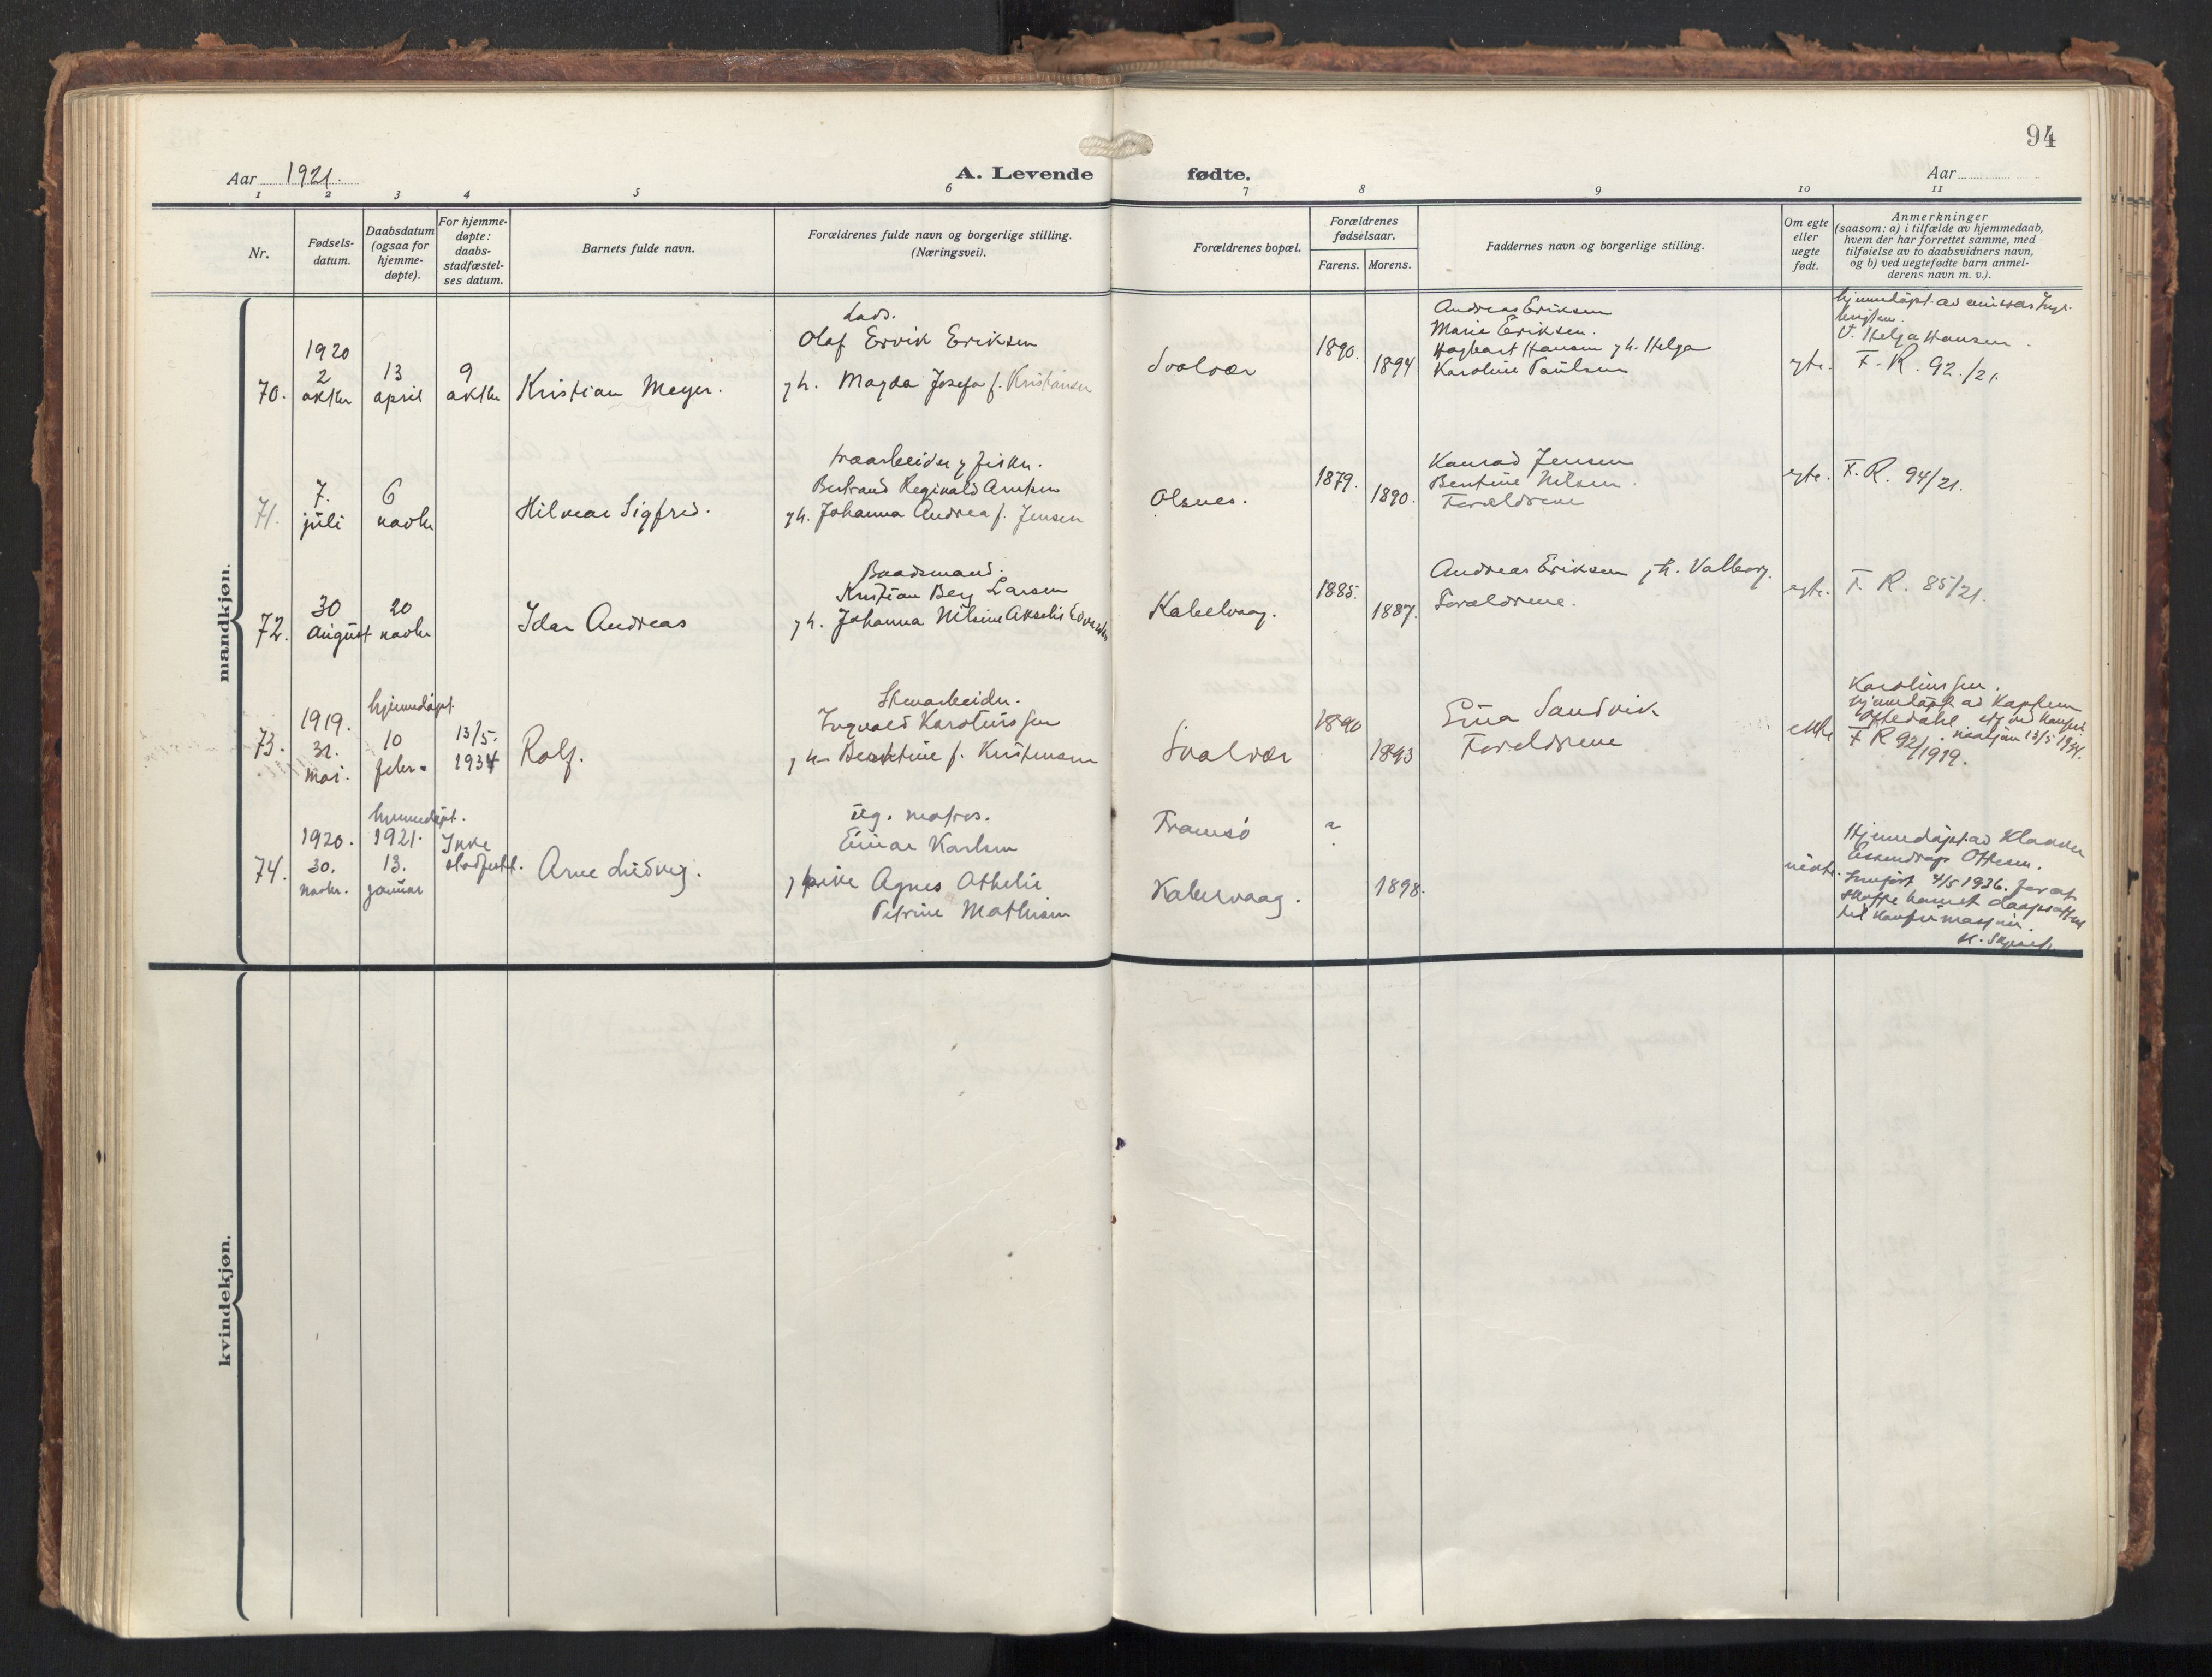 94
Aar 1921. A. Levende fødte. Aar
1 2 3 4 5 6 7 8 9 10 11
Nr.
Fødsels-
datum.
Daabsdatum
(ogsaa for
hjemme-
døpte).
For hjemme-
døpte:
daabs-
stadfæstel-
ses datum.
Barnets fulde navn.
Forældrenes fulde navn og borgerlige stilling.
(Næringsvei).
Forældrenes bopæl.
Forældrenes
fødselsaar.
Farens. Morens.
Faddernes navn og borgerlige stilling.
Om egte
eller
uegte
født.
Anmerkninger
(saasom: a) i tilfælde av hjemmedaab,
hvem der har forrettet samme, med
tilføielse av to daabsvidners navn,
og b) ved uegtefødte barn anmel-
derens navn m. v.).
mandkjøn.
70.
1920
2
oktbr
13
april
9
oktbr
Kristian Meyer.
Lods.
Olaf Ervik Eriksen
g h. Magda Josefa f. Kristiansen
Svolvær
1890.
1894
Andreas Eriksen
Marie Eriksen.
Hagbart Hansen g h. Helga
Karoline Paulsen
egte.
hjemmedøpt av
V. Helga Hansen.
F. R. 92./21.
71.
7.
juli
6
novbr
Hilmar Sigfred.
træarbeider g fisker.
Bertrand Reginald Arntsen
g h. Johanna Andrea f. Jensen
Olsnes.
1879.
1890.
Konrad Jensen
Bentine Nilsen.
Forældrene
egte.
F. R. 94/21.
72.
30
august
20
novbr
Idar Andreas
Baadsmand.
Kristian Berg Larsen
g h. Johanna Nilsine Akselie
Kabelvaag.
1885.
1887.
Andreas Eriksen g h. Valborg.
Forældrene.
egte.
F. R. 85/21.
73.
1919.
31.
mai.
hjemmedøpt
10
febr.
13/5.
1934
Rolf.
Stenarbeider.
Ingvald Karolinssen
g h f. Kristensen
Svolvær
1890
1893
Eina Sandvik
Foreldrene
ekte
Karolinssen.
hjemmedøpt av Kapellan
Oftedahl.
F R 92/1919.
74.
1920.
30.
novbr.
hjemmedøpt.
1921.
13.
januar
Ikke
stadfestet.
Arne Ludvig.
ug. matros.
Einar Karlsen
g pike Agnes Othelie
Petrine Mathisen
Tromsø
Kabelvaag.
?
1898.
uekte.
Hjemmedøpt av Klokker
Ottesen.
Innført 4/5 1936. for at
skaffe barnet daapsattest
til konfirmasjon.
kvindekjøn.